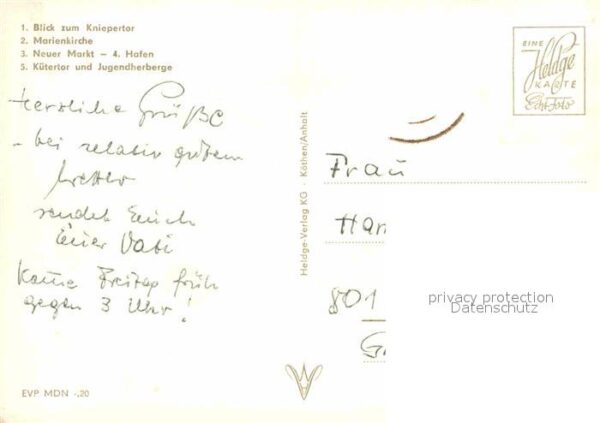 1. Blick zum Kniepertor
2. Marienkirche
3. Neuer Markt – 4. Hafen
5. Kütertor und Jugendherberge
Herzliche Grüße
bei relativ gutem
Wetter
sendet Euch
Euer Vati
Komme Freitag früh
gegen 3 Uhr!
EVP MDN -.20
Heldge-Verlag KG · Köthen/Anhalt
EINE
Heldge
KARTE
Echt Foto
Frau
Han
801
privacy protection
Datenschutz